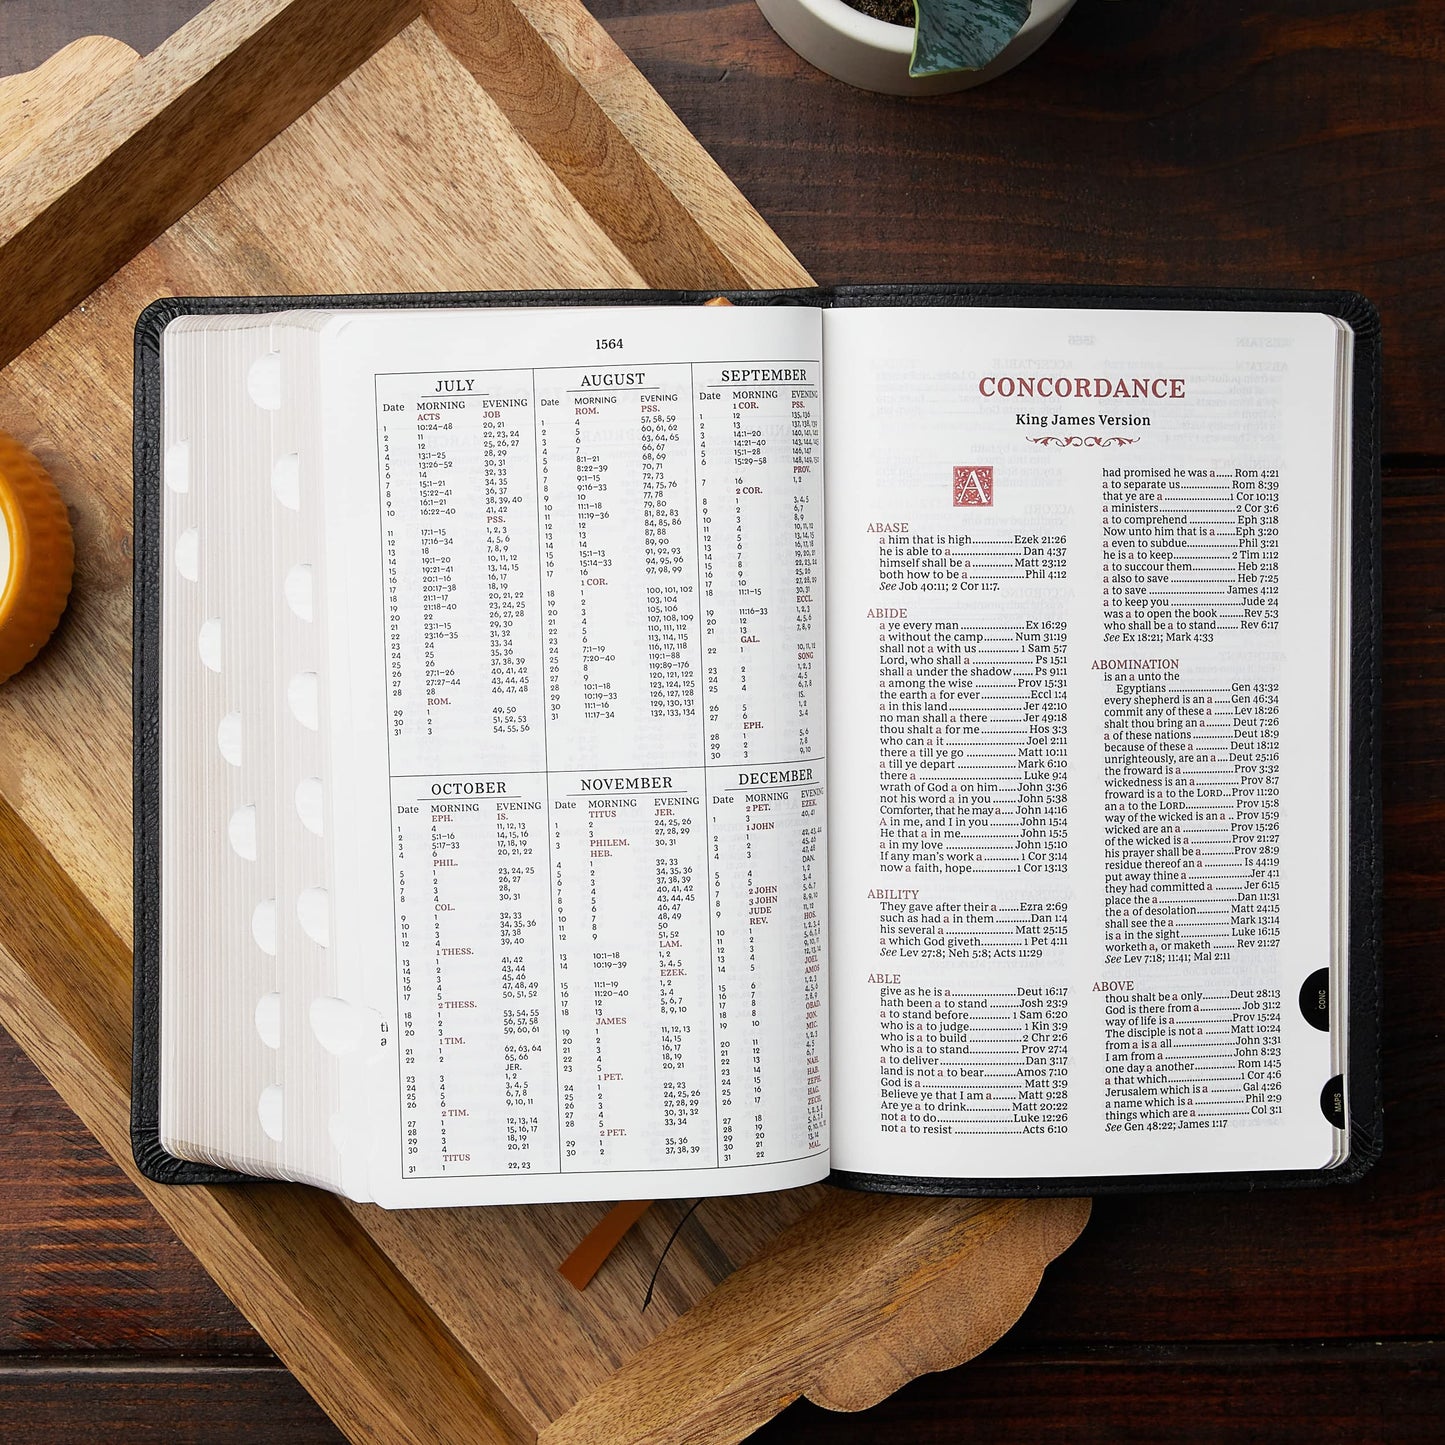 1564
JULY
Date MORNING EVENING
ACTS JOB
1 10:24–48 20, 21
2 11 22, 23, 24
3 12 25, 26, 27
4 13:1–25 28, 29
5 13:26–52 30, 31
6 14 32, 33
7 15:1–21 34, 35
8 15:22–41 36, 37
9 16:1–21 38, 39, 40
10 16:22–40 41, 42
PSS.
11 17:1–15 1, 2, 3
12 17:16–34 4, 5, 6
13 18 7, 8, 9
14 19:1–20 10, 11, 12
15 19:21–41 13, 14, 15
16 20:1–16 16, 17
17 20:17–38 18, 19
18 21:1–17 20, 21, 22
19 21:18–40 23, 24, 25
20 22 26, 27, 28
21 23:1–15 29, 30
22 23:16–35 31, 32
23 24 33, 34
24 25 35, 36
25 26 37, 38, 39
26 27:1–26 40, 41, 42
27 27:27–44 43, 44, 45
28 28 46, 47, 48
ROM.
29 1 49, 50
30 2 51, 52, 53
31 3 54, 55, 56
AUGUST
Date MORNING EVENING
ROM. PSS.
1 4 57, 58, 59
2 5 60, 61, 62
3 6 63, 64, 65
4 7 66, 67
5 8:1–21 68, 69
6 8:22–39 70, 71
7 9:1–15 72, 73
8 9:16–33 74, 75, 76
9 10 77, 78
10 11:1–18 79, 80
11 11:19–36 81, 82, 83
12 12 84, 85, 86
13 13 87, 88
14 14 89, 90
15 15:1–13 91, 92, 93
16 15:14–33 94, 95, 96
17 16 97, 98, 99
1 COR.
18 1 100, 101, 102
19 2 103, 104
20 3 105, 106
21 4 107, 108, 109
22 5 110, 111, 112
23 6 113, 114, 115
24 7:1–19 116, 117, 118
25 7:20–40 119:1–88
26 8 119:89–176
27 9 120, 121, 122
28 10:1–18 123, 124, 125
29 10:19–33 126, 127, 128
30 11:1–16 129, 130, 131
31 11:17–34 132, 133, 134
SEPTEMBER
Date MORNING EVENING
1 COR. PSS.
1 12 135, 136
2 13 137, 138, 139
3 14:1–20 140, 141, 142
4 14:21–40 143, 144, 145
5 15:1–28 146, 147
6 15:29–58 148, 149, 150
PROV.
7 16 1, 2
2 COR.
8 1 3, 4, 5
9 2 6, 7
10 3 8, 9
11 4 10, 11, 12
12 5 13, 14, 15
13 6 16, 17, 18
14 7 19, 20, 21
15 8 22, 23, 24
16 9 25, 26
17 10 27, 28, 29
18 11:1–15 30, 31
ECCL.
19 11:16–33 1, 2, 3
20 12 4, 5, 6
21 13 7, 8, 9
GAL.
22 1 10, 11, 12
SONG
23 2 1, 2, 3
24 3 4, 5
25 4 6, 7, 8
IS.
26 5 1, 2
27 6 3, 4
EPH.
28 1 5, 6
29 2 7, 8
30 3 9, 10
OCTOBER
Date MORNING EVENING
EPH. IS.
1 4 11, 12, 13
2 5:1–16 14, 15, 16
3 5:17–33 17, 18, 19
4 6 20, 21, 22
PHIL.
5 1 23, 24, 25
6 2 26, 27
7 3 28,
8 4 30, 31
COL.
9 1 32, 33
10 2 34, 35, 36
11 3 37, 38
12 4 39, 40
1 THESS.
13 1 41, 42
14 2 43, 44
15 3 45, 46
16 4 47, 48, 49
17 5 50, 51, 52
2 THESS.
18 1 53, 54, 55
19 2 56, 57, 58
20 3 59, 60, 61
1 TIM.
21 1 62, 63, 64
22 2 65, 66
JER.
23 3 1, 2
24 4 3, 4, 5
25 5 6, 7, 8
26 6 9, 10, 11
2 TIM.
27 1 12, 13, 14
28 2 15, 16, 17
29 3 18, 19
30 4 20, 21
TITUS
31 1 22, 23
NOVEMBER
Date MORNING EVENING
TITUS JER.
1 2 24, 25, 26
2 3 27, 28, 29
3 PHILEM. 30, 31
HEB.
4 1 32, 33
5 2 34, 35, 36
6 3 37, 38, 39
7 4 40, 41, 42
8 5 43, 44, 45
9 6 46, 47
10 7 48, 49
11 8 50
12 9 51, 52
LAM.
13 10:1–18 1, 2
14 10:19–39 3, 4, 5
EZEK.
15 11:1–19 1, 2
16 11:20–40 3, 4
17 12 5, 6, 7
18 13 8, 9, 10
JAMES
19 1 11, 12, 13
20 2 14, 15
21 3 16, 17
22 4 18, 19
23 5 20, 21
1 PET.
24 1 22, 23
25 2 24, 25, 26
26 3 27, 28, 29
27 4 30, 31, 32
28 5 33, 34
2 PET.
29 1 35, 36
30 2 37, 38, 39
DECEMBER
Date MORNING EVENING
2 PET. EZEK.
1 3 40, 41
1 JOHN
2 1 42, 43, 44
3 2 45, 46
4 3 47, 48
DAN.
5 4 1, 2
6 5 3, 4
7 2 JOHN 5, 6, 7
8 3 JOHN 8, 9, 10
9 JUDE 11, 12
REV. HOS.
10 1 1, 2, 3, 4
11 2 5, 6, 7, 8
12 3 9, 10, 11
13 4
JOEL
14 5
AMOS
15 6 1, 2, 3
16 7 4, 5, 6
17 8 7, 8, 9
18 9 OBAD.
19 10 JON.
MIC.
20 11 1, 2, 3
21 12 4, 5
22 13 6, 7
23 14 NAH.
24 15 HAB.
25 16 ZEPH.
26 17 HAG.
ZECH.
27 18
28 19
29 20
30 21 13, 14
31 22 MAL.
CONCORDANCE
King James Version
A
ABASE
a him that is high............Ezek 21:26
he is able to a....................Dan 4:37
himself shall be a...........Matt 23:12
both how to be a................Phil 4:12
See Job 40:11; 2 Cor 11:7.
ABIDE
a ye every man ................. Ex 16:29
a without the camp..........Num 31:19
shall not a with us ............1 Sam 5:7
Lord, who shall a ................ Ps 15:1
shall a under the shadow ...... Ps 91:1
a among the wise ............Prov 15:31
the earth a for ever..............Eccl 1:4
a in this land ...................Jer 42:10
no man shall a there .........Jer 49:18
thou shalt a for me ............. Hos 3:3
who can a it .......................Joel 2:11
there a till ye go ..............Matt 10:11
a till ye depart .................Mark 6:10
there a ..............................Luke 9:4
wrath of God a on him.......John 3:36
not his word a in you ........John 5:38
Comforter, that he may a....John 14:16
A in me, and I in you .........John 15:4
He that a in me..................John 15:5
a in my love ....................John 15:10
If any man's work a ...........1 Cor 3:14
now a faith, hope..............1 Cor 13:13
ABILITY
They gave after their a.......Ezra 2:69
such as had a in them ..........Dan 1:4
his several a ....................Matt 25:15
a which God giveth............1 Pet 4:11
See Lev 27:8; Neh 5:8; Acts 11:29
ABLE
give as he is a..................Deut 16:17
hath been a to stand .........Josh 23:9
a to stand before.............1 Sam 6:20
who is a to judge................1 Kin 3:9
who is a to build ...............2 Chr 2:6
who is a to stand................Prov 27:4
a to deliver .......................Dan 3:17
land is not a to bear..........Amos 7:10
God is a ............................Matt 3:9
Believe ye that I am a........Matt 9:28
Are ye a to drink..............Matt 20:22
not a to do......................Luke 12:26
not a to resist ...................Acts 6:10
had promised he was a...... Rom 4:21
a to separate us............... Rom 8:39
that ye are a ....................1 Cor 10:13
a ministers.......................2 Cor 3:6
a to comprehend ..............Eph 3:18
Now unto him that is a ......Eph 3:20
a even to subdue................Phil 3:21
he is a to keep................. 2 Tim 1:12
a to succour them..............Heb 2:18
a also to save ...................Heb 7:25
a to save ........................James 4:12
a to keep you ....................Jude 24
was a to open the book ......Rev 5:3
who shall be a to stand......Rev 6:17
See Ex 18:21; Mark 4:33
ABOMINATION
is an a unto the
Egyptians .......................Gen 43:32
every shepherd is an a .....Gen 46:34
commit any of these a ......Lev 18:26
shalt thou bring an a........Deut 7:26
a of these nations .............Deut 18:9
because of these a ...........Deut 18:12
unrighteously, are an a....Deut 25:16
the froward is a ................Prov 3:32
wickedness is an a.............Prov 8:7
froward is a to the LORD...Prov 11:20
an a to the LORD................Prov 15:8
way of the wicked is an a ..Prov 15:9
wicked are an a ...............Prov 15:26
of the wicked is a .............Prov 21:27
his prayer shall be a..........Prov 28:9
residue thereof an a ..........Is 44:19
put away thine a ................Jer 4:1
they had committed a ........Jer 6:15
place the a .......................Dan 11:31
the a of desolation...........Matt 24:15
shall see the a .................Mark 13:14
is a in the sight................Luke 16:15
worketh a, or maketh .......Rev 21:27
See Lev 7:18; 11:41; Mal 2:11
ABOVE
thou shalt be a only.........Deut 28:13
God is there from a...........Job 31:2
way of life is a .................Prov 15:24
The disciple is not a .........Matt 10:24
from a is a all ..................John 3:31
I am from a ......................John 8:23
one day a another.............Rom 14:5
a that which.....................1 Cor 4:6
Jerusalem which is a .........Gal 4:26
a name which is a .............Phil 2:9
things which are a ............Col 3:1
See Gen 48:22; James 1:17
CONC
MAPS